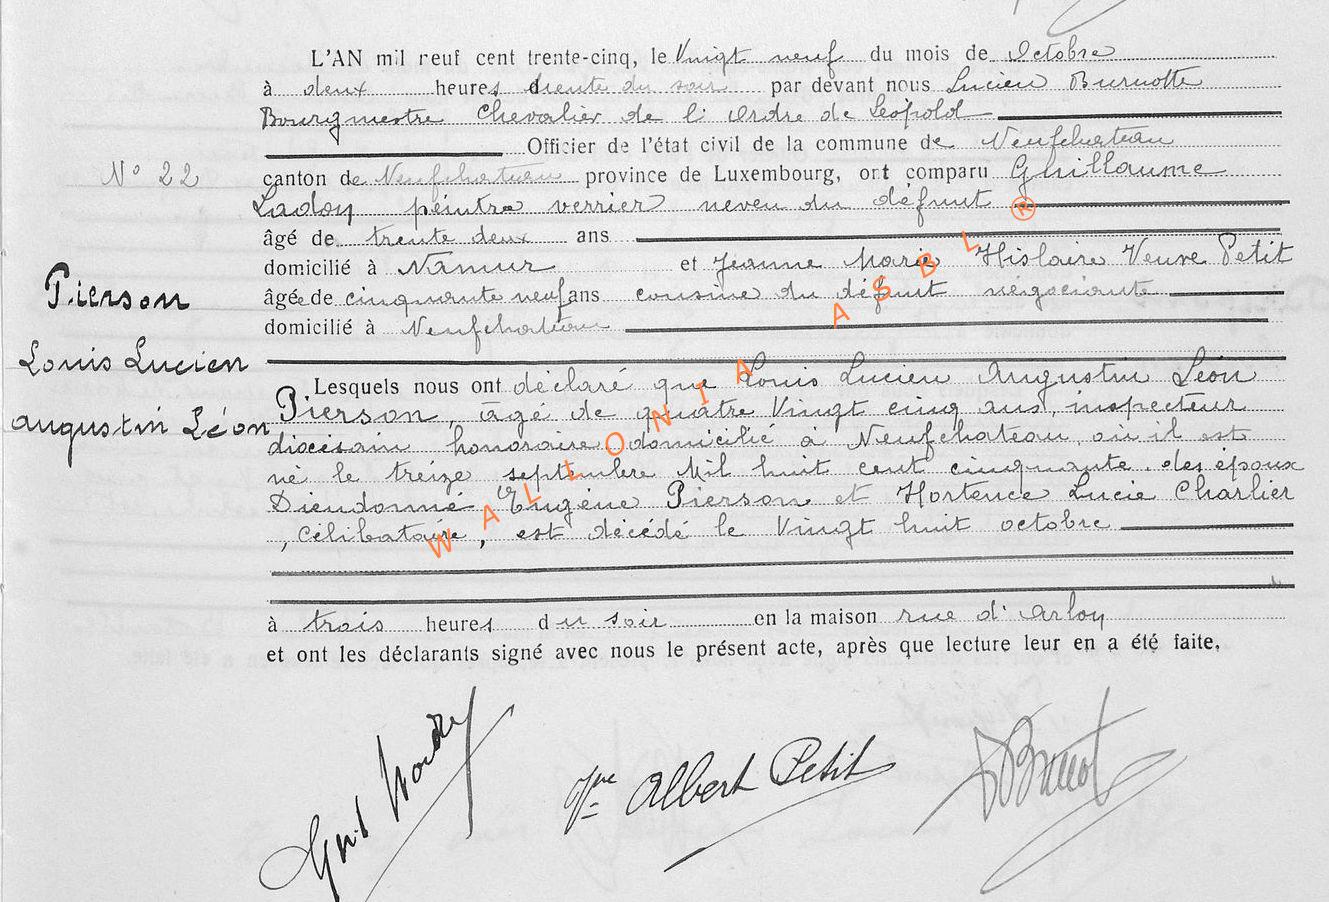 L'AN mil neuf cent trente-cinq, le Vingt neuf du mois de Octobre
à deux heures trente du soir par devant nous Lucien Burnotte
Bourgmestre Chevalier de l'Ordre de Léopold
Officier de l'état civil de la commune de Neufchateau
N° 22
canton de Neufchateau province de Luxembourg, ont comparu Ghillaume
peintre verrier neveu du défunt
âgé de trente deux ans
domicilié à Namur et Jeanne Marie Hislaire Veuve Petit
Pierson
âgée de cinquante neuf ans cousine du défunt négociante
domicilié à Neufchateau
Louis Lucien
Augustin Léon
Lesquels nous ont déclaré que Louis Lucien Augustin Léon
Pierson, âgé de quatre Vingt cinq ans, inspecteur
diocésain honoraire domicilié à Neufchateau, où il est
né le treize septembre Mil huit cent cinquante. des époux
Dieudonné Eugène Pierson et Hortence Lucie Charlier
, célibataire, est décédé le Vingt huit octobre
à trois heures du soir en la maison rue d'Arlon
et ont les déclarants signé avec nous le présent acte, après que lecture leur en a été faite,
Vve Albert Petit
WALLONIA ASBL ®